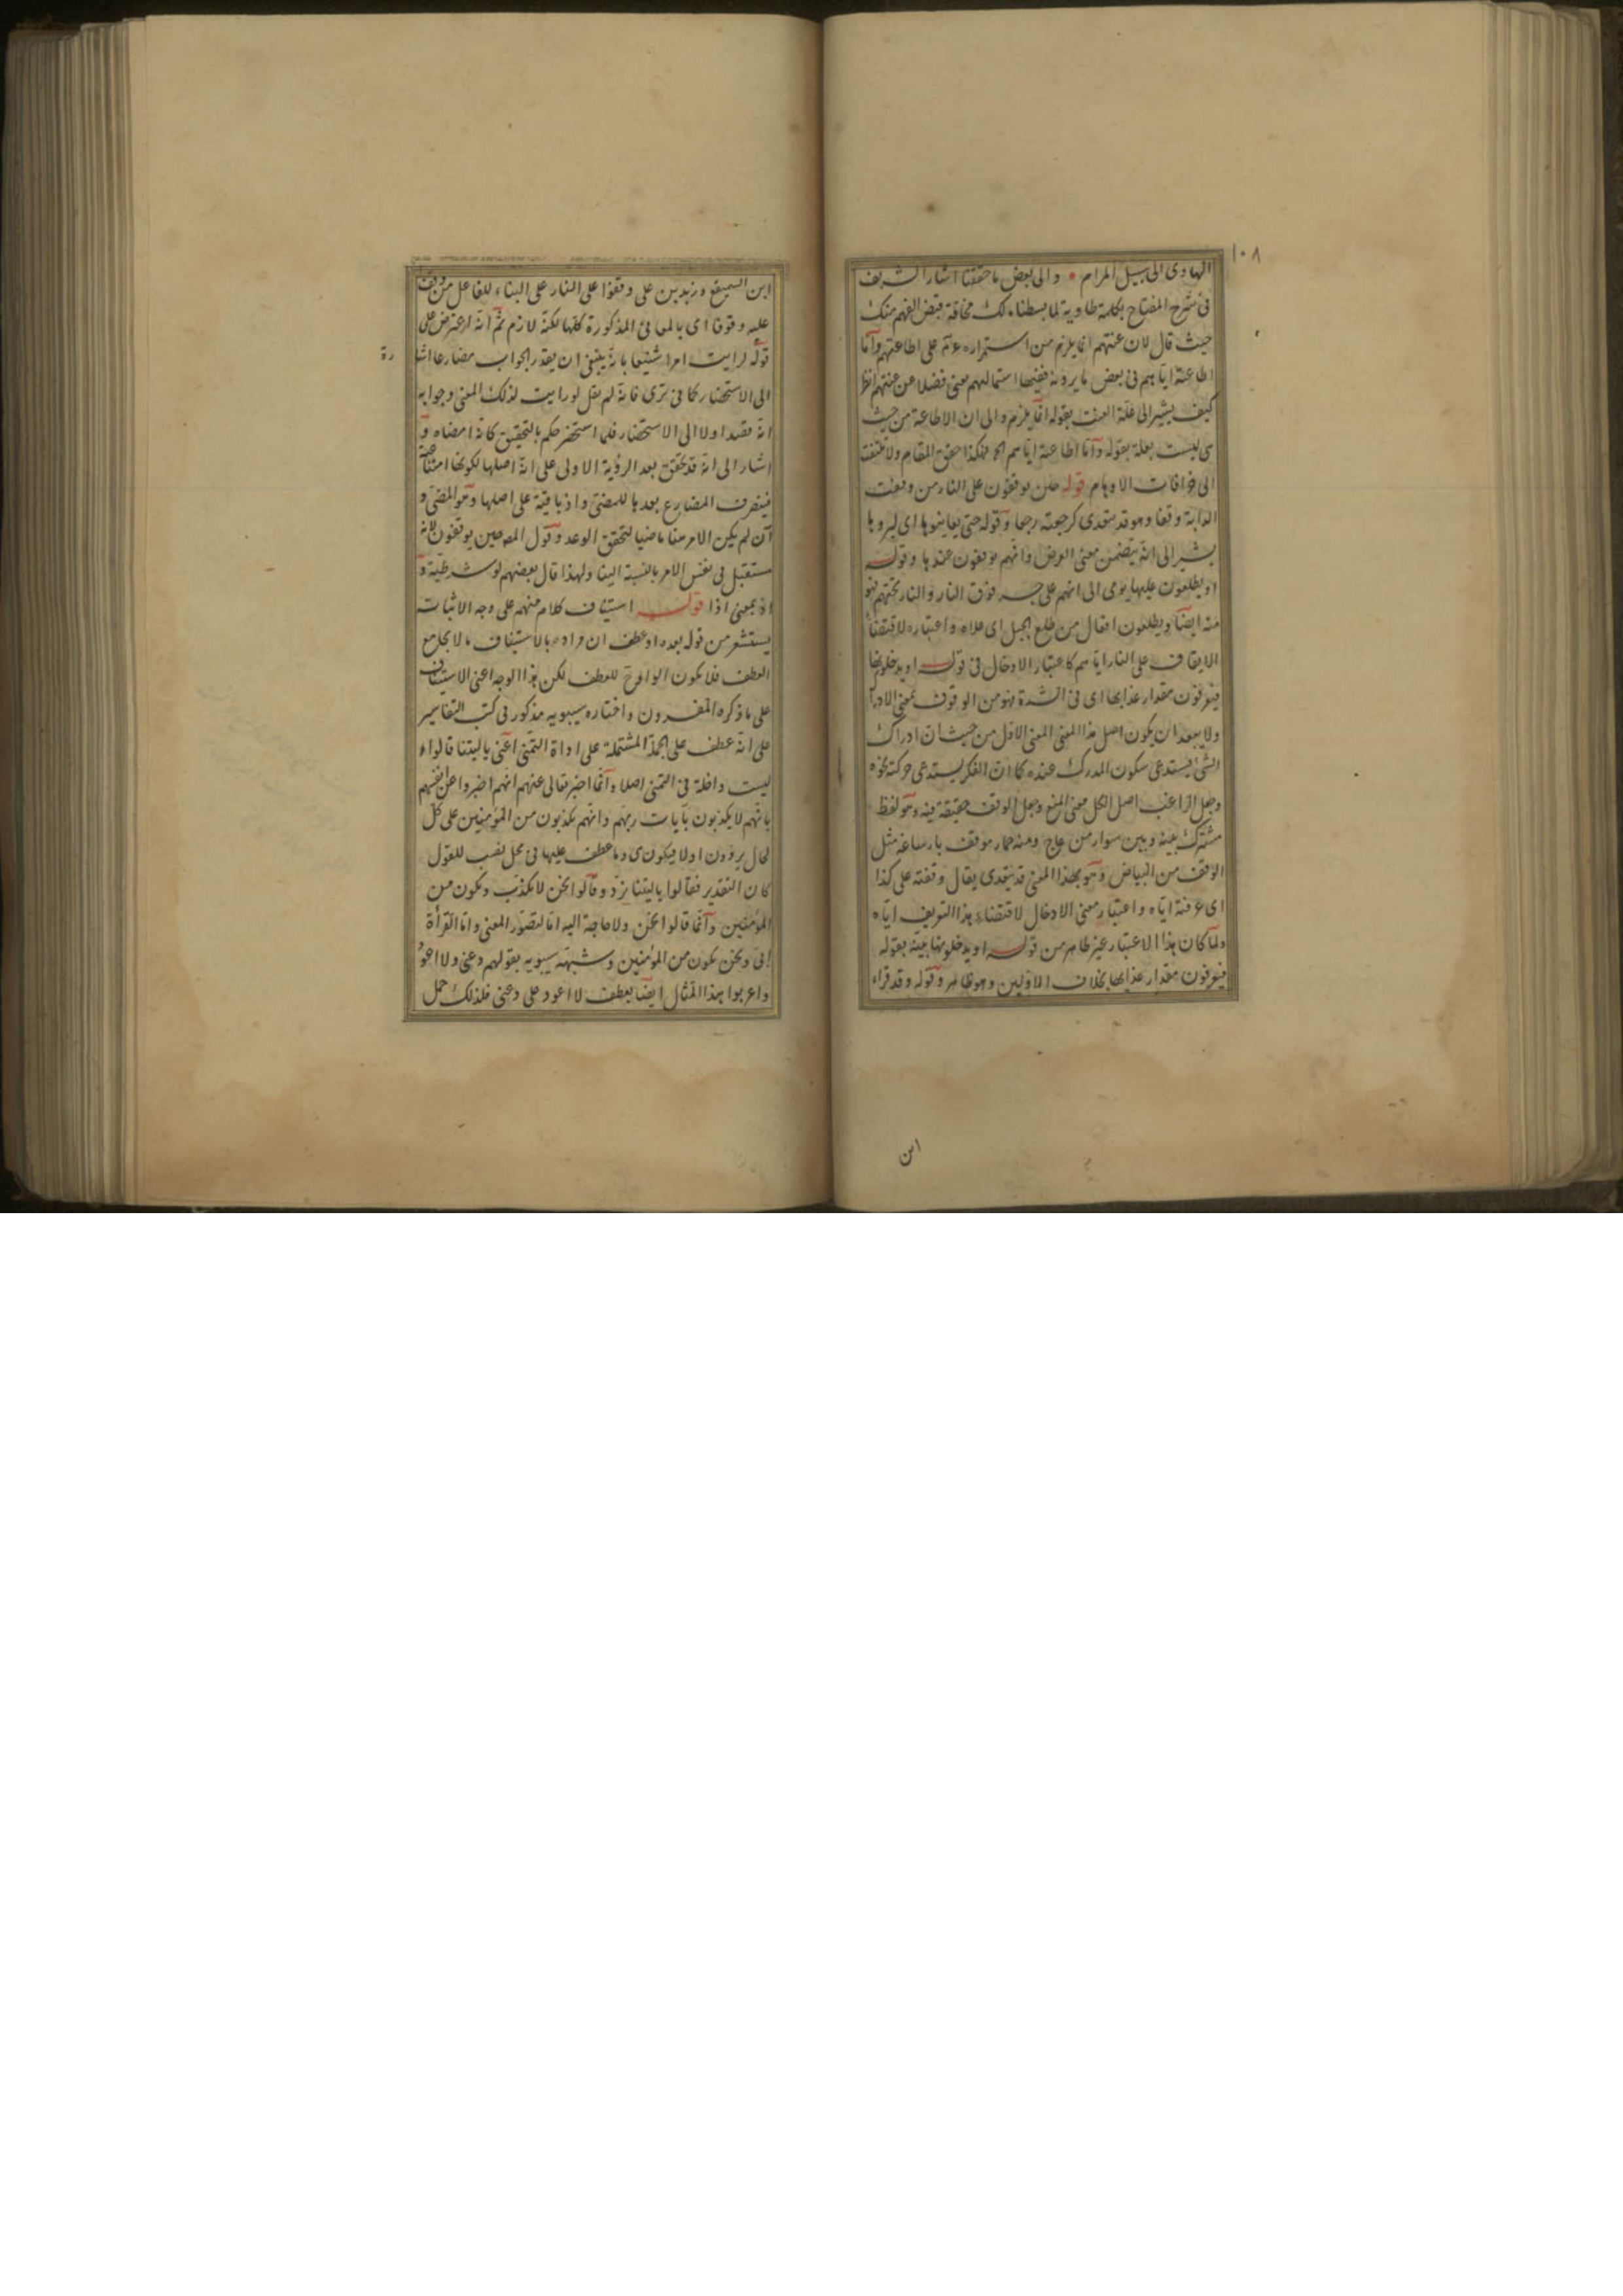 ١٠٨
الهادى الى سبيل المرام والى بعض ما حققنا اشار الشريف
فى شرح المفتاح بكلمة طاوية لما بسطناه لك مخافة قبض الفهم منك
حيث قال لان عنتهم انما يلزم من استمراره على اطاعتهم واما
اطاعته اياهم فى بعض ما يرونه ففيها استمالتهم معنى فضلا عن عنتهم انظر
كيف يشير الى علة العنت بقوله انما يلزم والى ان الاطاعة من حيث
هى ليست بعلة بقوله واما اطاعته اياهم الخ هكذا حقق المقام ولا تلتفت
الى خرافات الاوهام قوله حين يوقفون على النار من وقفت
الدابة وقفا وهو قد يتعدى كرجعته رجعا وقوله حتى يعاينوها اى ليروها
يشير الى انه يتضمن معنى العرض وانهم يوقفون عندها وقوله
او يطلعون عليها يومى الى انهم على جسر فوق النار والنار تحتهم فهو
منه ايضا ويطلعون افعال من طلع الجبل اى علاه واعتباره لاقتضاء
الايقاف على النار اياهم كاعتبار الادخال فى قوله او يدخلونها
فيعرفون مقدار عذابها اى فى الشدة فهو من الوقوف بمعنى الادراك
ولا يبعد ان يكون اصل هذا المعنى المعنى الاول من حيث ان ادراك
الشئ يستدعى سكون المدرك عنده كما ان الفكر يستدعى حركته نحوه
وجعل الراغب اصل الكل معنى المنع وجعل الوقف حقيقة فيه وهو لفظ
مشترك بينه وبين سوار من عاج ومنه حمار موقف بارساغه مثل
الوقف من البياض وهو بهذا المعنى قد يتعدى يقال وقفته على كذا
اى عرفته اياه واعتبار معنى الادخال لاقتضاء هذا التعريف اياه
ولما كان هذا الاعتبار غير ظاهر من قوله او يدخلونها بينه بقوله
فيعرفون مقدار عذابها بخلاف الاولين وهو ظاهر وقوله وقد قراء
ابن
ابن السميفع وزيد بن على وقفوا على النار على البناء للفاعل من وقف
عليه وقوفا اى بالمعانى المذكورة كلها لكنه لازم ثم انه اعترض على
قوله لرايت امرا شنيعا بانه ينبغى ان يقدر الجواب مضارعا اشارة
الى الاستحضار كما فى ترى فانه لم يقل لو رايت لذلك المعنى وجوابه
انه قصد اولا الى الاستحضار فلما استحضر حكم بالتحقيق كانه امضاه و
اشار الى انه قد تحقق بعد الرؤية الاولى على انه اصلها لكونها امتناعية
فيصرف المضارع بعدها للمضى واذ باقية على اصلها وهو المضى و
ان لم يكن الامر منا ماضيا لتحقق الوعد وقول المص حين يوقفون لانه
مستقبل فى نفس الامر بالنسبة الينا ولهذا قال بعضهم لو شرطية و
اذ بمعنى اذا قوله استيناف كلام منهم على وجه الاثبات
يستشعر من قوله بعده او عطف ان مراده بالاستيناف ما لا يجامع
العطف فلا يكون الواو ح للعطف لكن هذا الوجه اعنى الاستيناف
على ما ذكره المفسرون واختاره سيبويه مذكور فى كتب التفاسير
على انه عطف على الجملة المشتملة على اداة التمنى اعنى ياليتنا قالوا و
ليست داخلة فى التمنى اصلا وانما اخبر تعالى عنهم انهم اخبروا عن انفسهم
بانهم لا يكذبون بآيات ربهم وانهم يكونون من المؤمنين على كل
حال يردون او لا فيكون هى وما عطف عليها فى محل نصب للقول
كان التقدير فقالوا ياليتنا نرد وقالوا نحن لا نكذب ونكون من
المؤمنين وانما قالوا نحن ولا حاجة اليه اما لتصور المعنى واما القرأة
ابى ونحن نكون من المؤمنين وشبهه سيبويه بقولهم دعنى ولا اعود
واعربوا هذا المثال ايضا بعطف لا اعود على دعنى فلذلك حمل